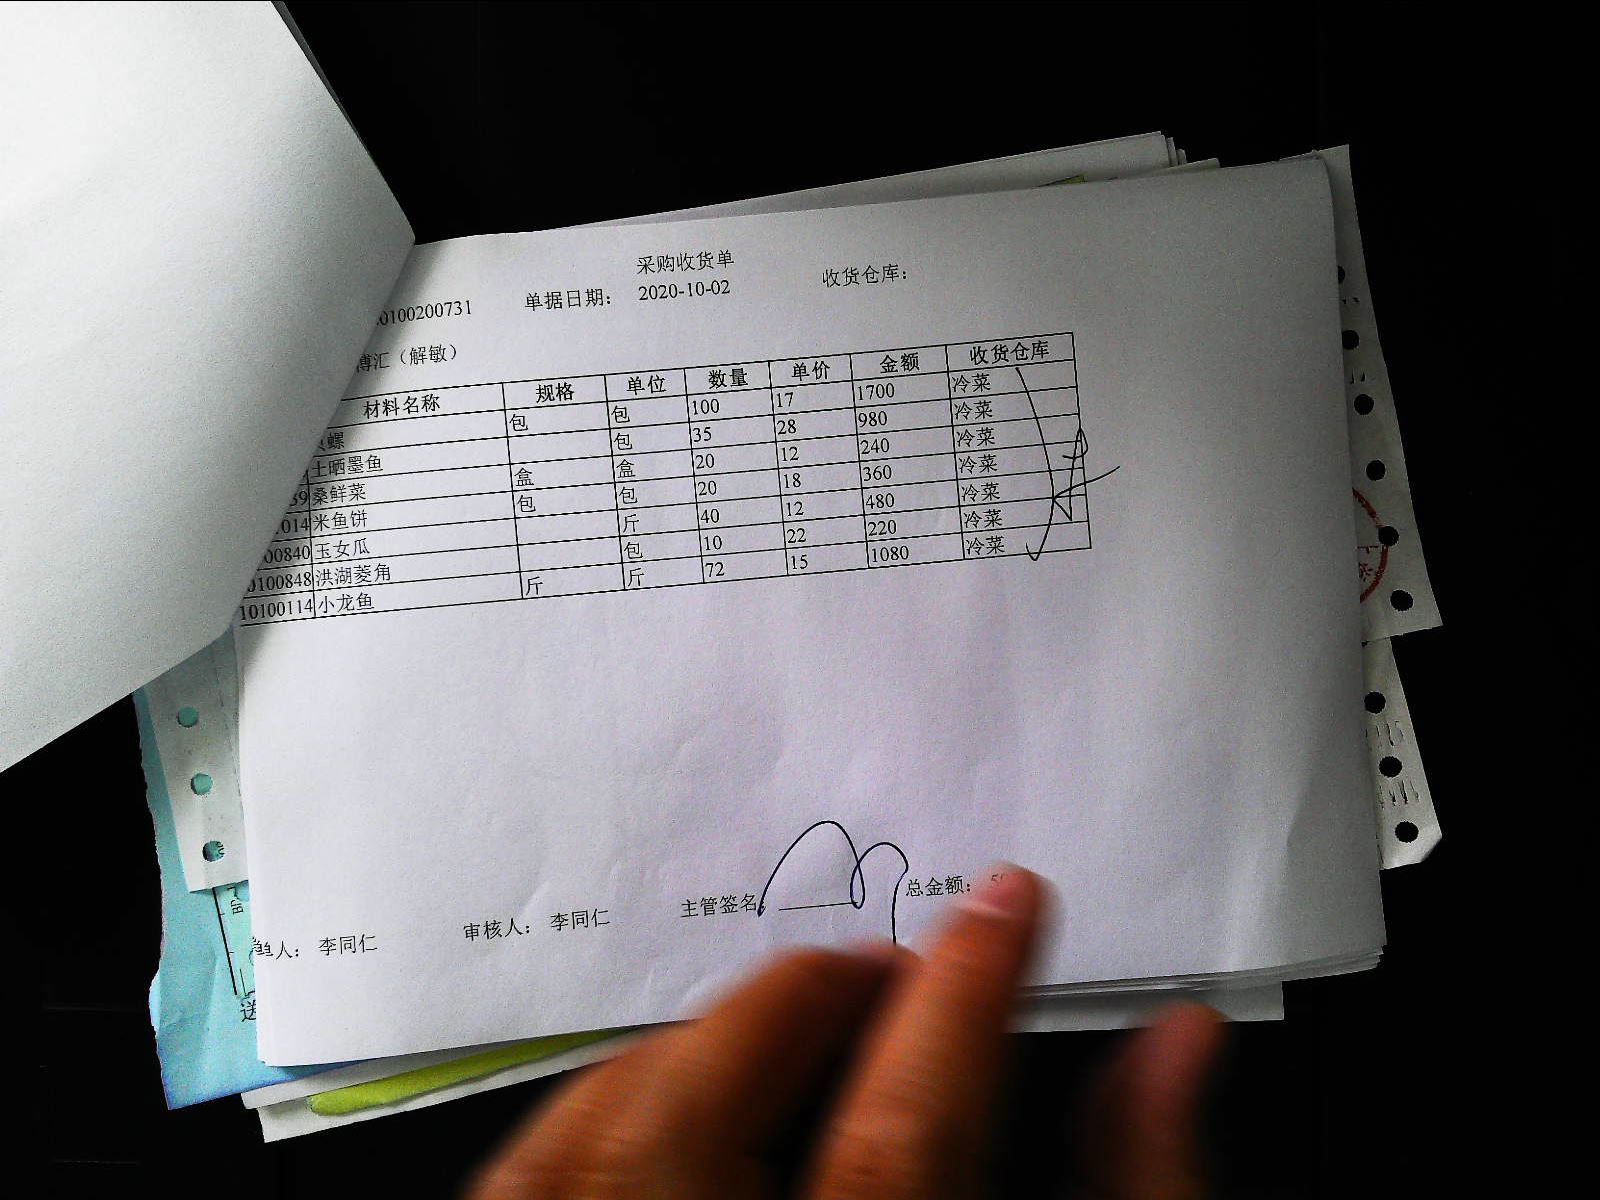 采购收货单
0100200731 单据日期： 2020-10-02 收货仓库：
博汇（解敏）
材料名称 规格 单位 数量 单价 金额 收货仓库
螺 包 包 100 17 1700 冷菜
土晒墨鱼 包 35 28 980 冷菜
39 桑鲜菜 盒 盒 20 12 240 冷菜
014 米鱼饼 包 包 20 18 360 冷菜
00840 玉女瓜 斤 40 12 480 冷菜
0100848 洪湖菱角 包 10 22 220 冷菜
10100114 小龙鱼 斤 斤 72 15 1080 冷菜
人： 李同仁 审核人： 李同仁 主管签名： 总金额：
送